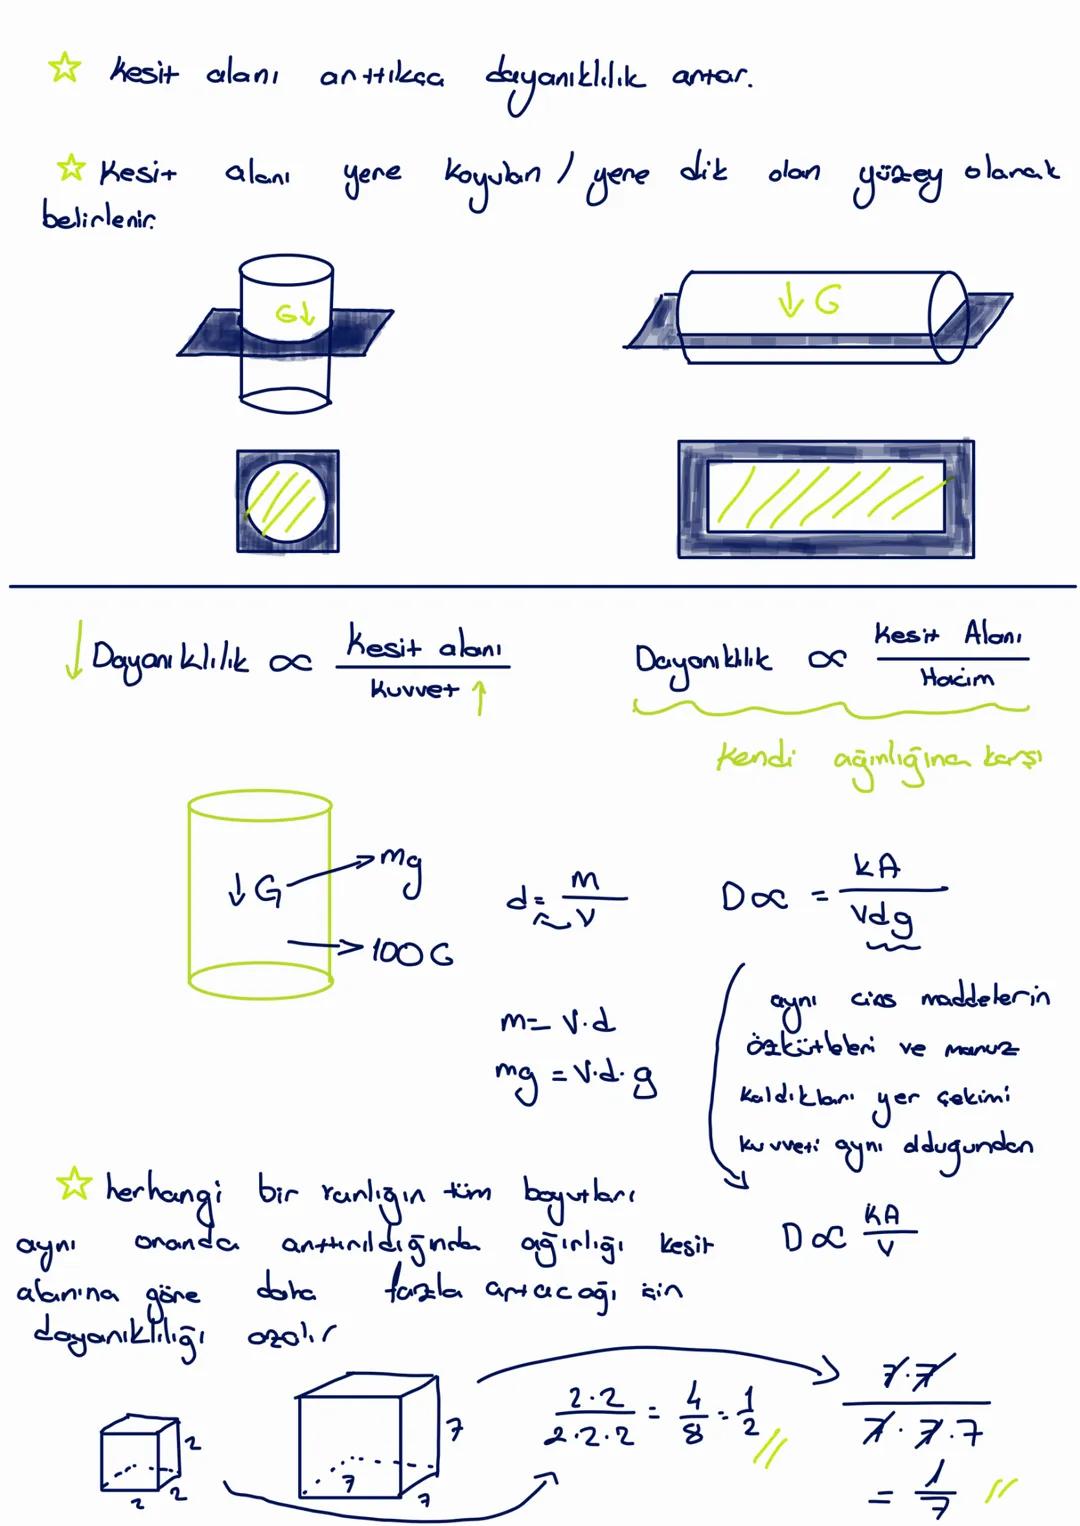 ☆ Kesit alanı arttıkça dayanıklılık artar.
☆ Kesit alanı yere koyulan / yere dik olan yüzey olarak
belirlenir.
G↓
↓ G
↓ Dayanıklılık ∝ Kesit alanı / Kuvvet ↑
Dayanıklılık ∝ Kesit Alanı / Hacim
Kendi ağırlığına karşı
↓ G → mg
→ 100 G
d = m / v
D ∝ = kA / vdg
m = v.d
mg = v.d.g
aynı cins maddelerin
özkütleleri ve maruz
kaldıkları yer çekimi
kuvveti aynı olduğundan
D ∝ kA / v
☆ herhangi bir varlığın tüm boyutları
aynı oranda arttırıldığında ağırlığı kesit
alanına göre daha fazla artacağı için
dayanıklılığı azalır
2 2 2
7 7 7
2.2 / 2.2.2 = 4 / 8 = 1 / 2 //
7.7 / 7.7.7
= 1 / 7 //